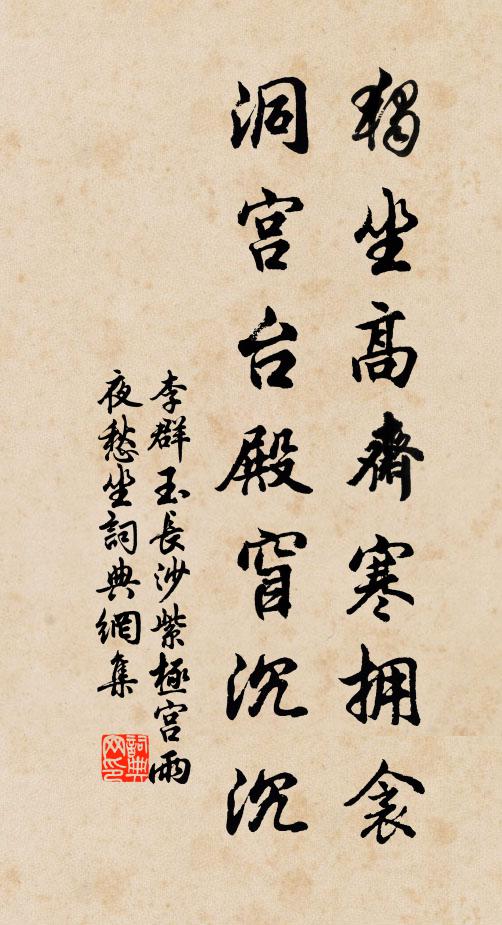 獨坐高齋寒拥衾
洞宫台殿窅沉沉
李群玉長沙紫極宫雨
夜愁坐詞典網集
詞典
网印